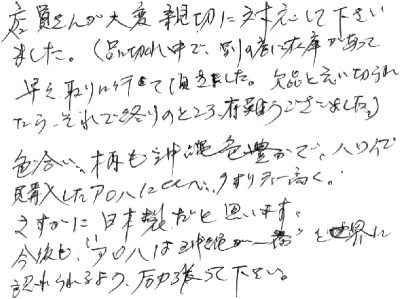 店員さんが大変親切に対応して下さい
ました。(品切れ中で、別の店に在庫があって
早速取りに行って頂きました。欠品と言い切られ
たら、それで終りのところ、有難うございました。)
色合い、柄も沖縄色豊かで、ハワイで
購入したアロハに比べ、クオリティー高く。
さすがに日本製だと思います。
今後も、"アロハは沖縄が一番"と世界に
認められるよう、頑張って下さい。